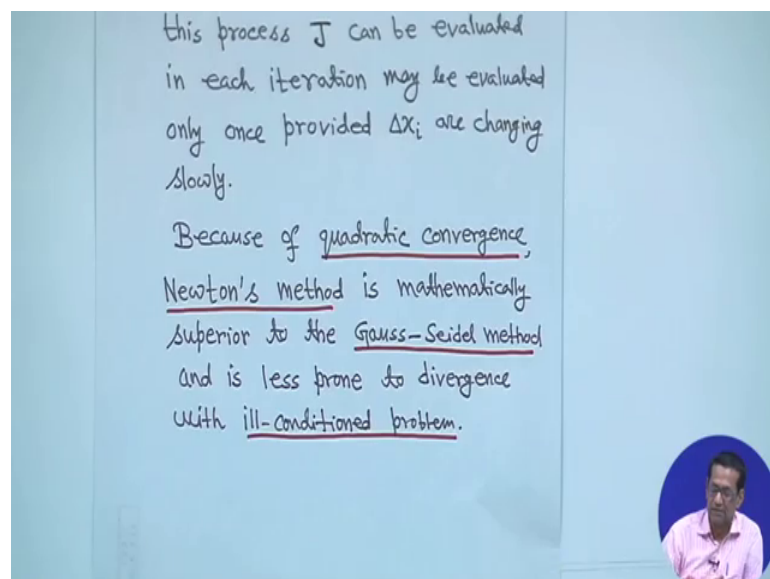 this process J can be evaluated
in each iteration may be evaluated
only once provided Δxᵢ are changing
slowly.
Because of quadratic convergence,
Newton's method is mathematically
superior to the Gauss-Seidel method
and is less prone to divergence
with ill-conditioned problem.